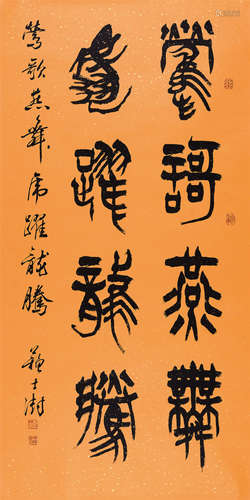 鶯謌燕舞
虎躍龍騰
莺歌燕舞虎躍龍騰
苏士澍